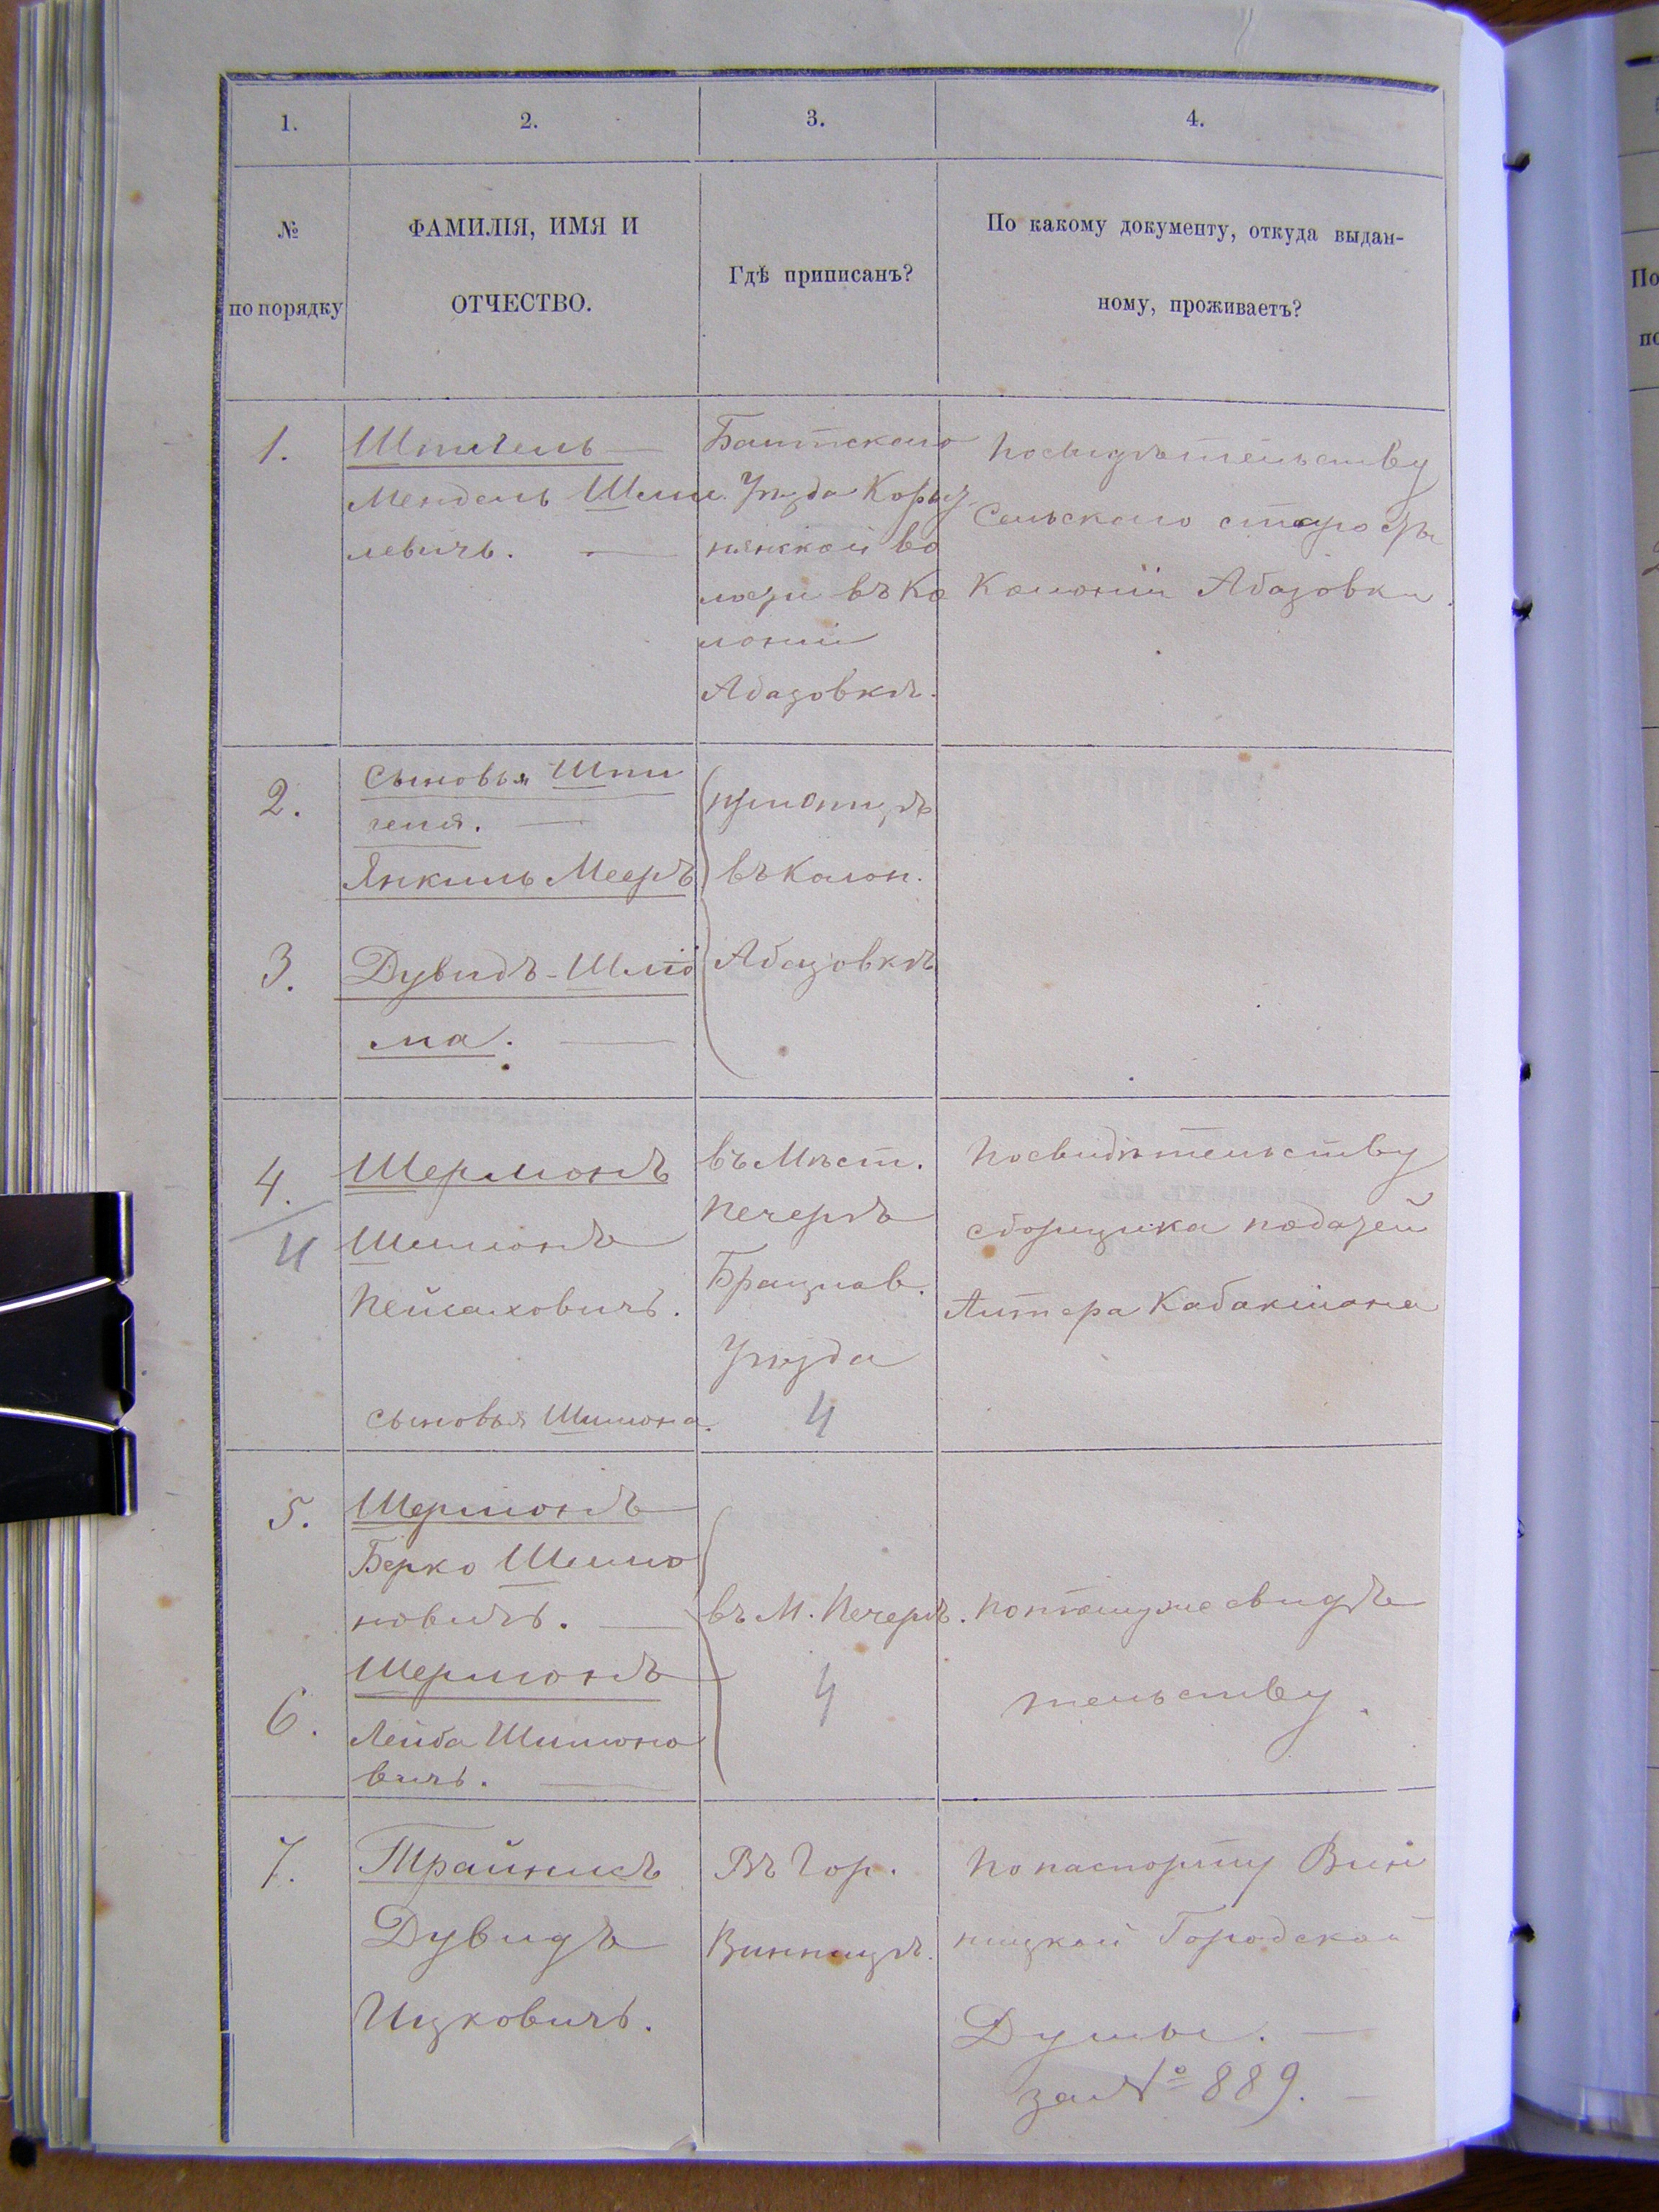 1.
2.
3.
4.
№
по порядку
ФАМИЛІЯ, ИМЯ И
ОТЧЕСТВО.
Гдѣ приписанъ?
По какому документу, откуда выдан-
ному, проживаетъ?
1.
Шпигель —
Мендель Шми
левичъ. —
Балтскаго
Уѣзда
во
лости въ Ко
лоніи
Абазовкѣ.
По свидѣтельству
Сельскаго старосты
Колоніи Абазовки
2.
Сыновья Шпи
геля. —
Янкиль Мееръ
въ Колон.
3.
Дувидъ-Шліо
ма. —
Абазовкѣ
4.
4
Шермонъ
Шимонъ
Пейсаховичъ.
сыновья Шимона.
въ Мѣст.
Печерѣ
Брацлав.
Уѣзда
4
По свидѣтельству
сборщика податей
Литера Кабакмана
5.
Шермонъ
Берко Шимо
новичъ. —
6.
Шермонъ
Лейба Шимоно
вичъ. —
въ М. Печерѣ.
4
по томуже свидѣ
тельству.
7.
Трайнисъ
Дувидъ
Ицковичъ.
Въ Гор.
Винницѣ.
По паспорту Вин
ницкой Городской
Думы. —
за № 889. —